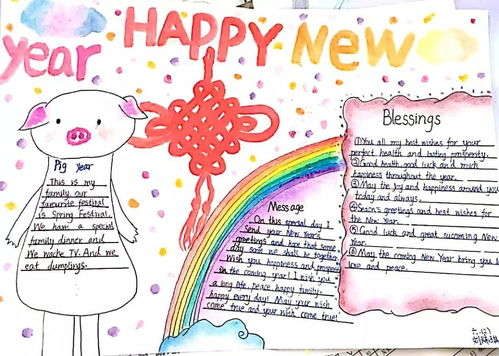 HAPPY New
year
Pig year
This is my
family, our
favourite festival
is Spring Festival.
We have a special
family dinner and
We wache TV. And we
eat dumplings.
Message
On this special day I
send your New Year's
greetings and hope that some
day soon we shall be together.
Wish you happiness and prosperity
in the coming year! I wish you
a long life, peace happy family.
happy every day! May your wish
come true and your wish come true!
Blessings
①You all my best wishes for your
perfect health and lasting prosperity.
②Good health, good luck and much
happiness throughout the year.
③May the joy and happiness around you
today and always.
④Season's greetings and best wishes for
the New Year.
⑤Good luck and great success coming New
Year.
⑥May the coming New Year bring you
love and peace.